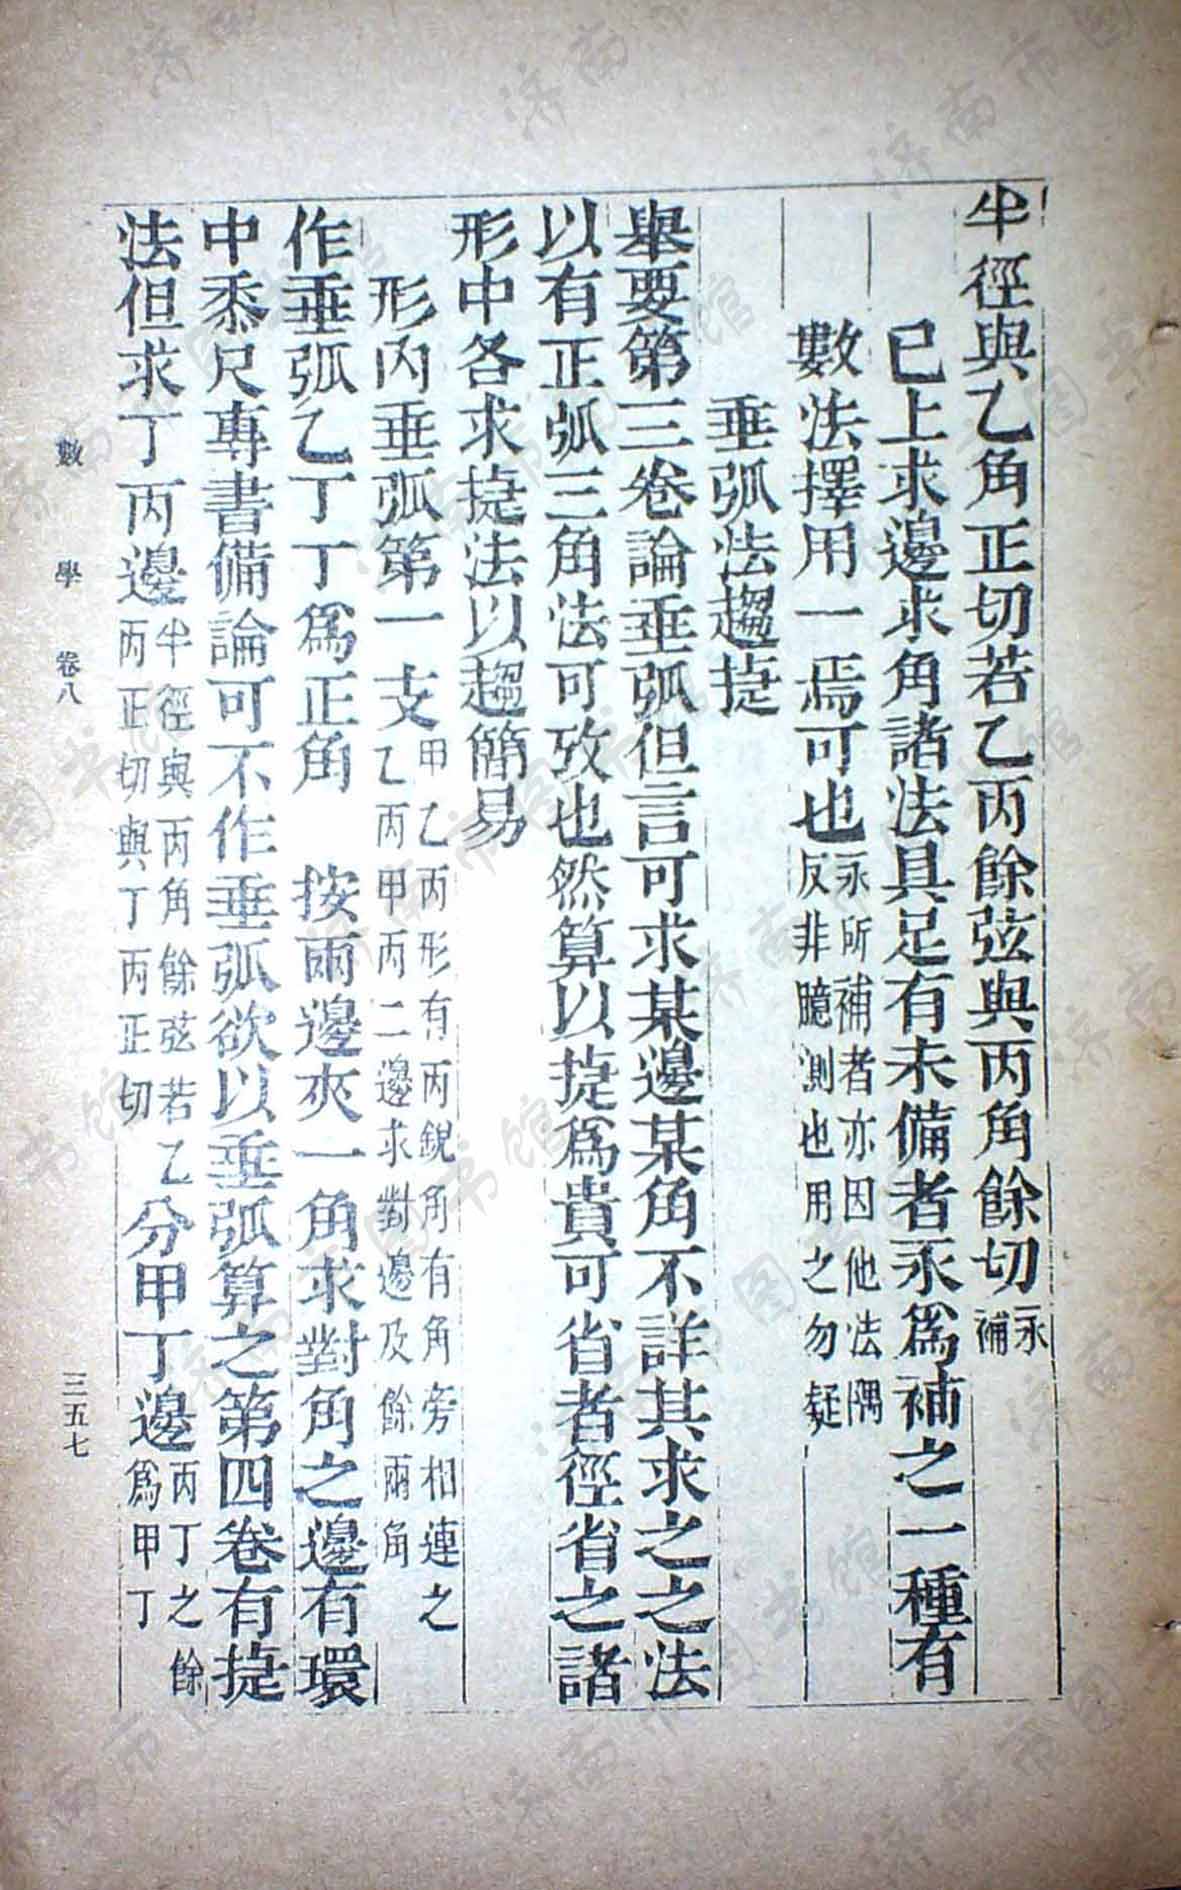 半徑與乙角正切若乙丙餘弦與丙角餘切永補
已上求邊求角諸法具足有未備者永爲補之一種有
數法擇用一焉可也永所補者亦因他法隅反非臆測也用之勿疑
垂弧法趨捷
舉要第三卷論垂弧但言可求某邊某角不詳其求之之法
以有正弧三角法可攷也然算以捷爲貴可省者徑省之諸
形中各求捷法以趨簡易
形內垂弧第一支甲乙丙形有丙銳角有角旁相連之乙丙甲丙二邊求對邊及餘兩角
作垂弧乙丁丁爲正角 按兩邊夾一角求對角之邊有環
中黍尺專書備論可不作垂弧欲以垂弧算之第四卷有捷
法但求丁丙邊半徑與丙角餘弦若乙丙正切與丁丙正切分甲丁邊丙丁之餘爲甲丁
數學 卷八 三五七